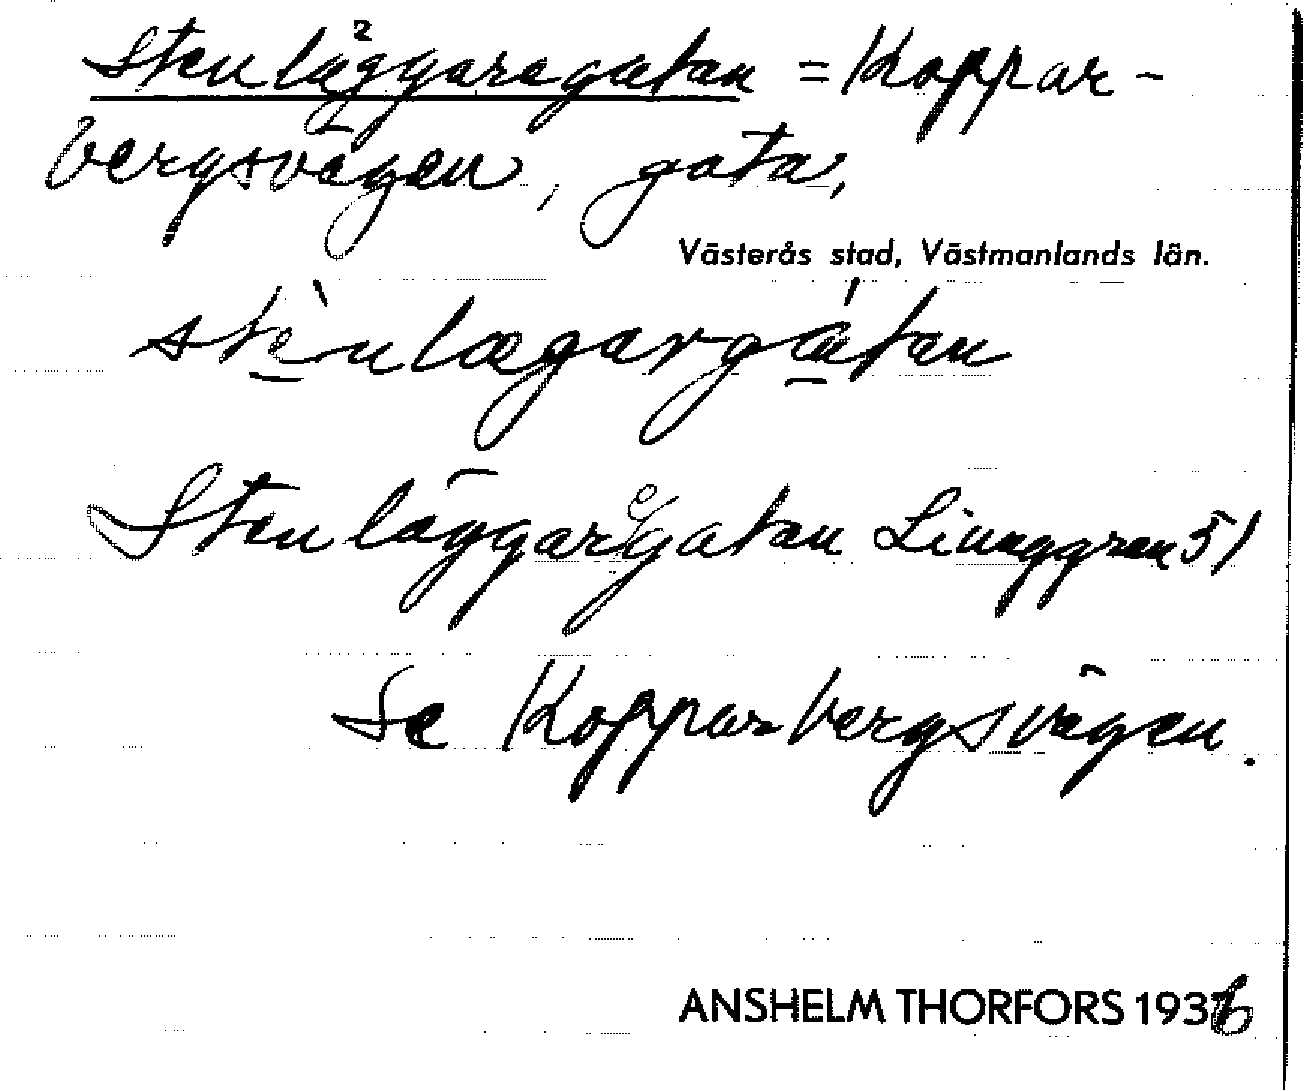 Stenläggaregatan = Koppar-
bergsvägen, gata,
Västerås stad, Västmanlands län.
stènlægargátan
Stenläggar(e)gatan Liunggren 51
Se Kopparbergsvägen.
ANSHELM THORFORS 1936